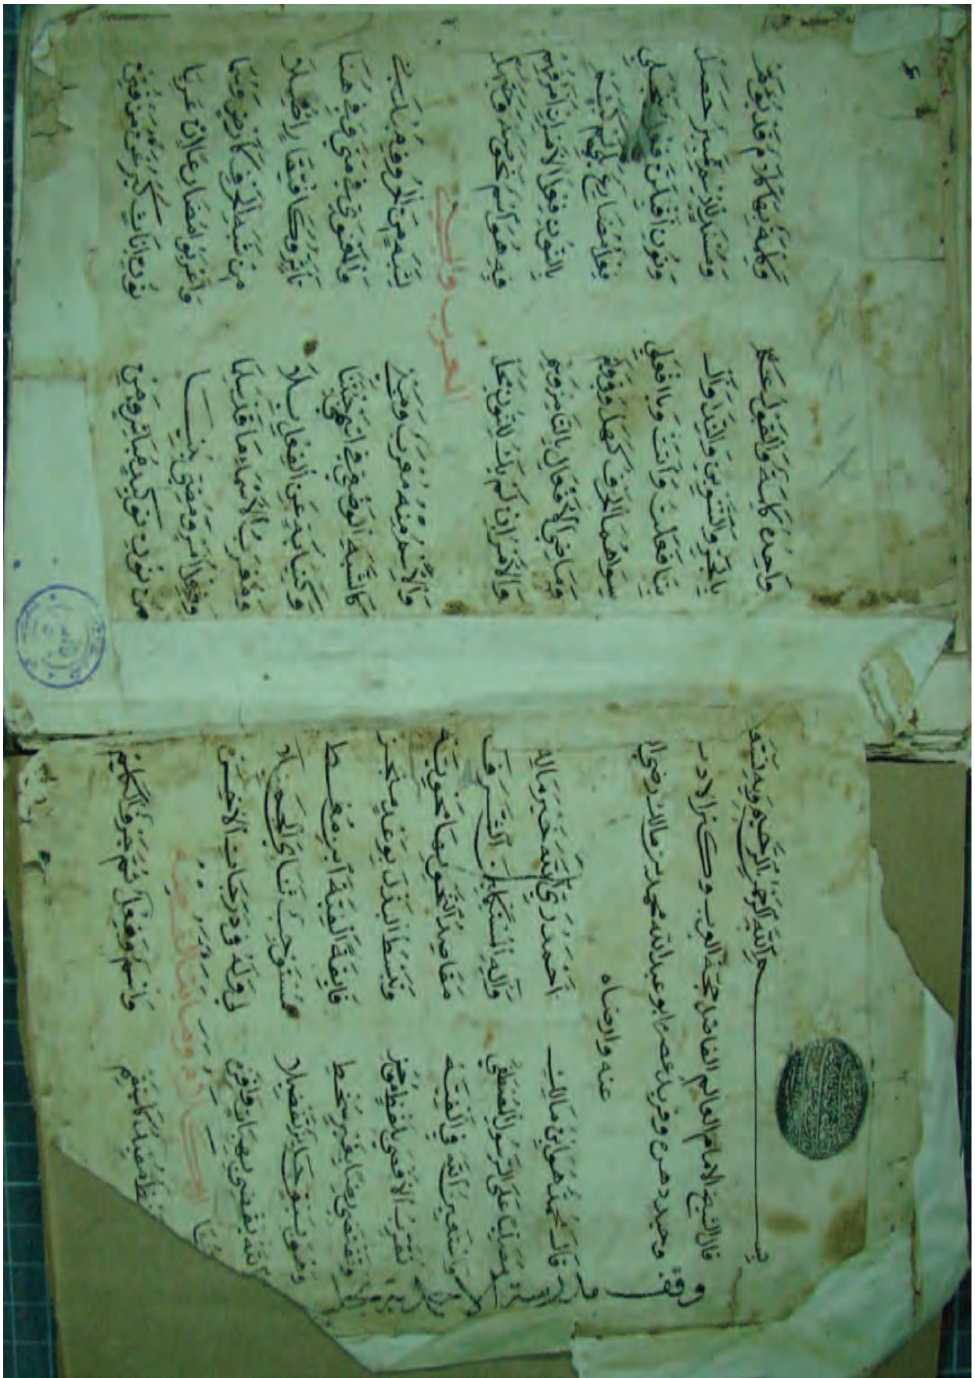 بسم الله الرحمن الرحيم وبه ثقتي
قال الشيخ الامام العالم الفاضل حجة العرب وكنز الادب
وحيد دهره وفريد عصره ابو عبد الله محمد بن مالك رضي الله
عنه وارضاه
قَالَ محمد هُوَ ابْنُ مَالِكِ اَحْمَدُ رَبِّي اللهَ خَيْرَ مَالِكِ
مُصَلِّيًا عَلَى الرَّسُولِ المُصْطَفَى وَآلِهِ المُسْتَكْمِلِينَ الشَّرَفَا
وَاسْتَعِينُ اللهَ فِي اَلْفِيَّه مَقَاصِدُ النَّحْوِ بِهَا مَحْوِيَّه
تُقَرِّبُ الاَقْصَى بِلَفْظٍ مُوجَزِ وَتَبْسُطُ البَذْلَ بِوَعْدٍ مُنْجَزِ
وَتَقْتَضِي رِضًا بِغَيْرِ سُخْطِ فَايِقَةً اَلْفِيَّةَ ابْنِ مُعْطِ
وَهُوَ بِسَبْقٍ حَايِزٌ تَفْضِيلَا مُسْتَوْجِبٌ ثَنَائِيَ الجَمِيلَا
الله يَقْضِي بِهِبَاتٍ وَافِرَه لِي وَلَهُ فِي دَرَجَاتِ الآخِرَه
الكلام وما يتالف منه
لفظ مُفِيدٌ كَاسْتَقِمْ وَاسْمٌ وَفِعْلٌ ثُمَّ حَرْفٌ الكَلِمْ
وقف
وَاحِدُهُ كَلِمَةٌ وَالقَوْلُ عَمْ وَكَلْمَةٌ بِهَا كَلَامٌ قَدْ يُؤَمْ
بِالجَرِّ وَالتَّنْوِينِ وَالنِّدَا وَاَلْ وَمُسْنَدٍ لِلاِسْمِ تَمْيِيزٌ حَصَلْ
بِتَا فَعَلْتَ وَاَتَتْ وَيَا افْعَلِي وَنُونِ اَقْبِلَنَّ فعل ينجلي
سِوَاهُمَا الحَرْفُ كَهَلْ وَفِي وَلَمْ فِعْلٌ مُضَارِعٌ يَلِي لَمْ كَيَشَمْ
وَمَاضِيَ الاَفْعَالِ بِالتَّا مِزْ وَسِمْ بِالنُّونِ فِعْلَ الاَمْرِ اِنْ اَمْرٌ فُهِمْ
وَالاَمْرُ اِنْ لَمْ يَكُ لِلنُّونِ مَحَلْ فِيهِ هُوَ اسْمٌ نَحْوُ صَهْ وَحَيَّهَلْ
المعرب والمبني
وَالاِسْمُ مِنْهُ مُعْرَبٌ وَمَبْنِي لِشَبَهٍ مِنَ الحُرُوفِ مُدْنِي
كَالشَّبَهِ الوَضْعِيِّ فِي اسْمَيْ جِئْتَنَا وَالمَعْنَوِيِّ فِي مَتَى وَفِي هُنَا
وَكَنِيَابَةٍ عَنِ الفِعْلِ بِلَا تَاَثُّرٍ وَكَافْتِقَارٍ اُصِّلَا
وَمُعْرَبُ الاَسْمَاءِ مَا قَدْ سَلِمَا مِنْ شَبَهِ الحَرْفِ كَاَرْضٍ وَسُمَا
وَفِعْلُ اَمْرٍ وَمُضِيٍّ بُنِيَا وَاَعْرَبُوا مُضَارِعًا اِنْ عَرِيَا
مِنْ نُونِ تَوْكِيدٍ مُبَاشِرٍ وَمِنْ نُونِ اِنَاثٍ كَيَرُعْنَ مَنْ فُتِنْ